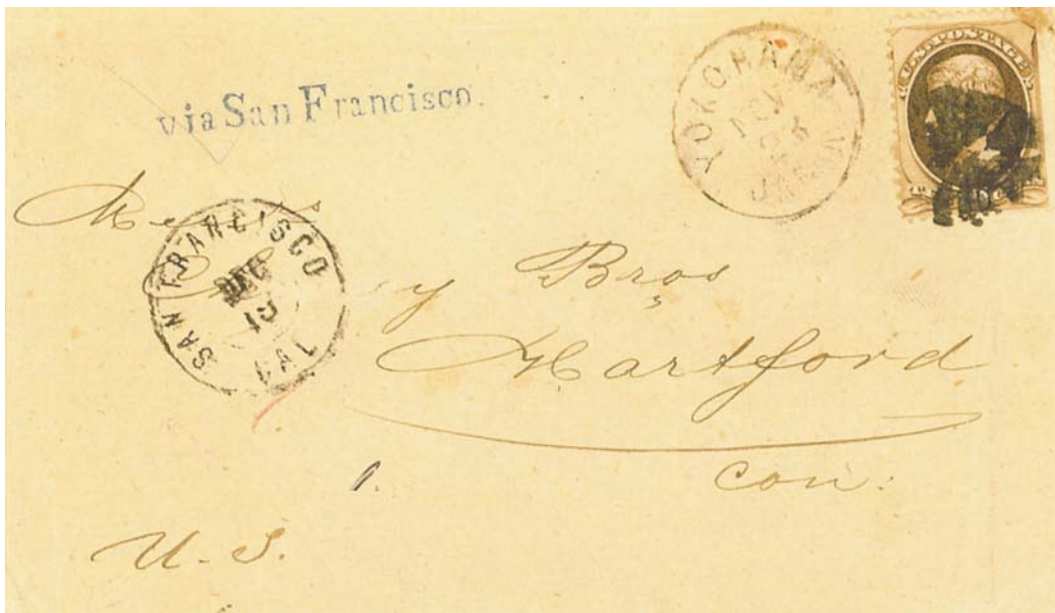 via San Francisco.
YOKOHAMA
JAPAN
U.S. POSTAGE
SAN FRANCISCO
DEC
CAL
y Bros
Hartford
Con:
U. S.